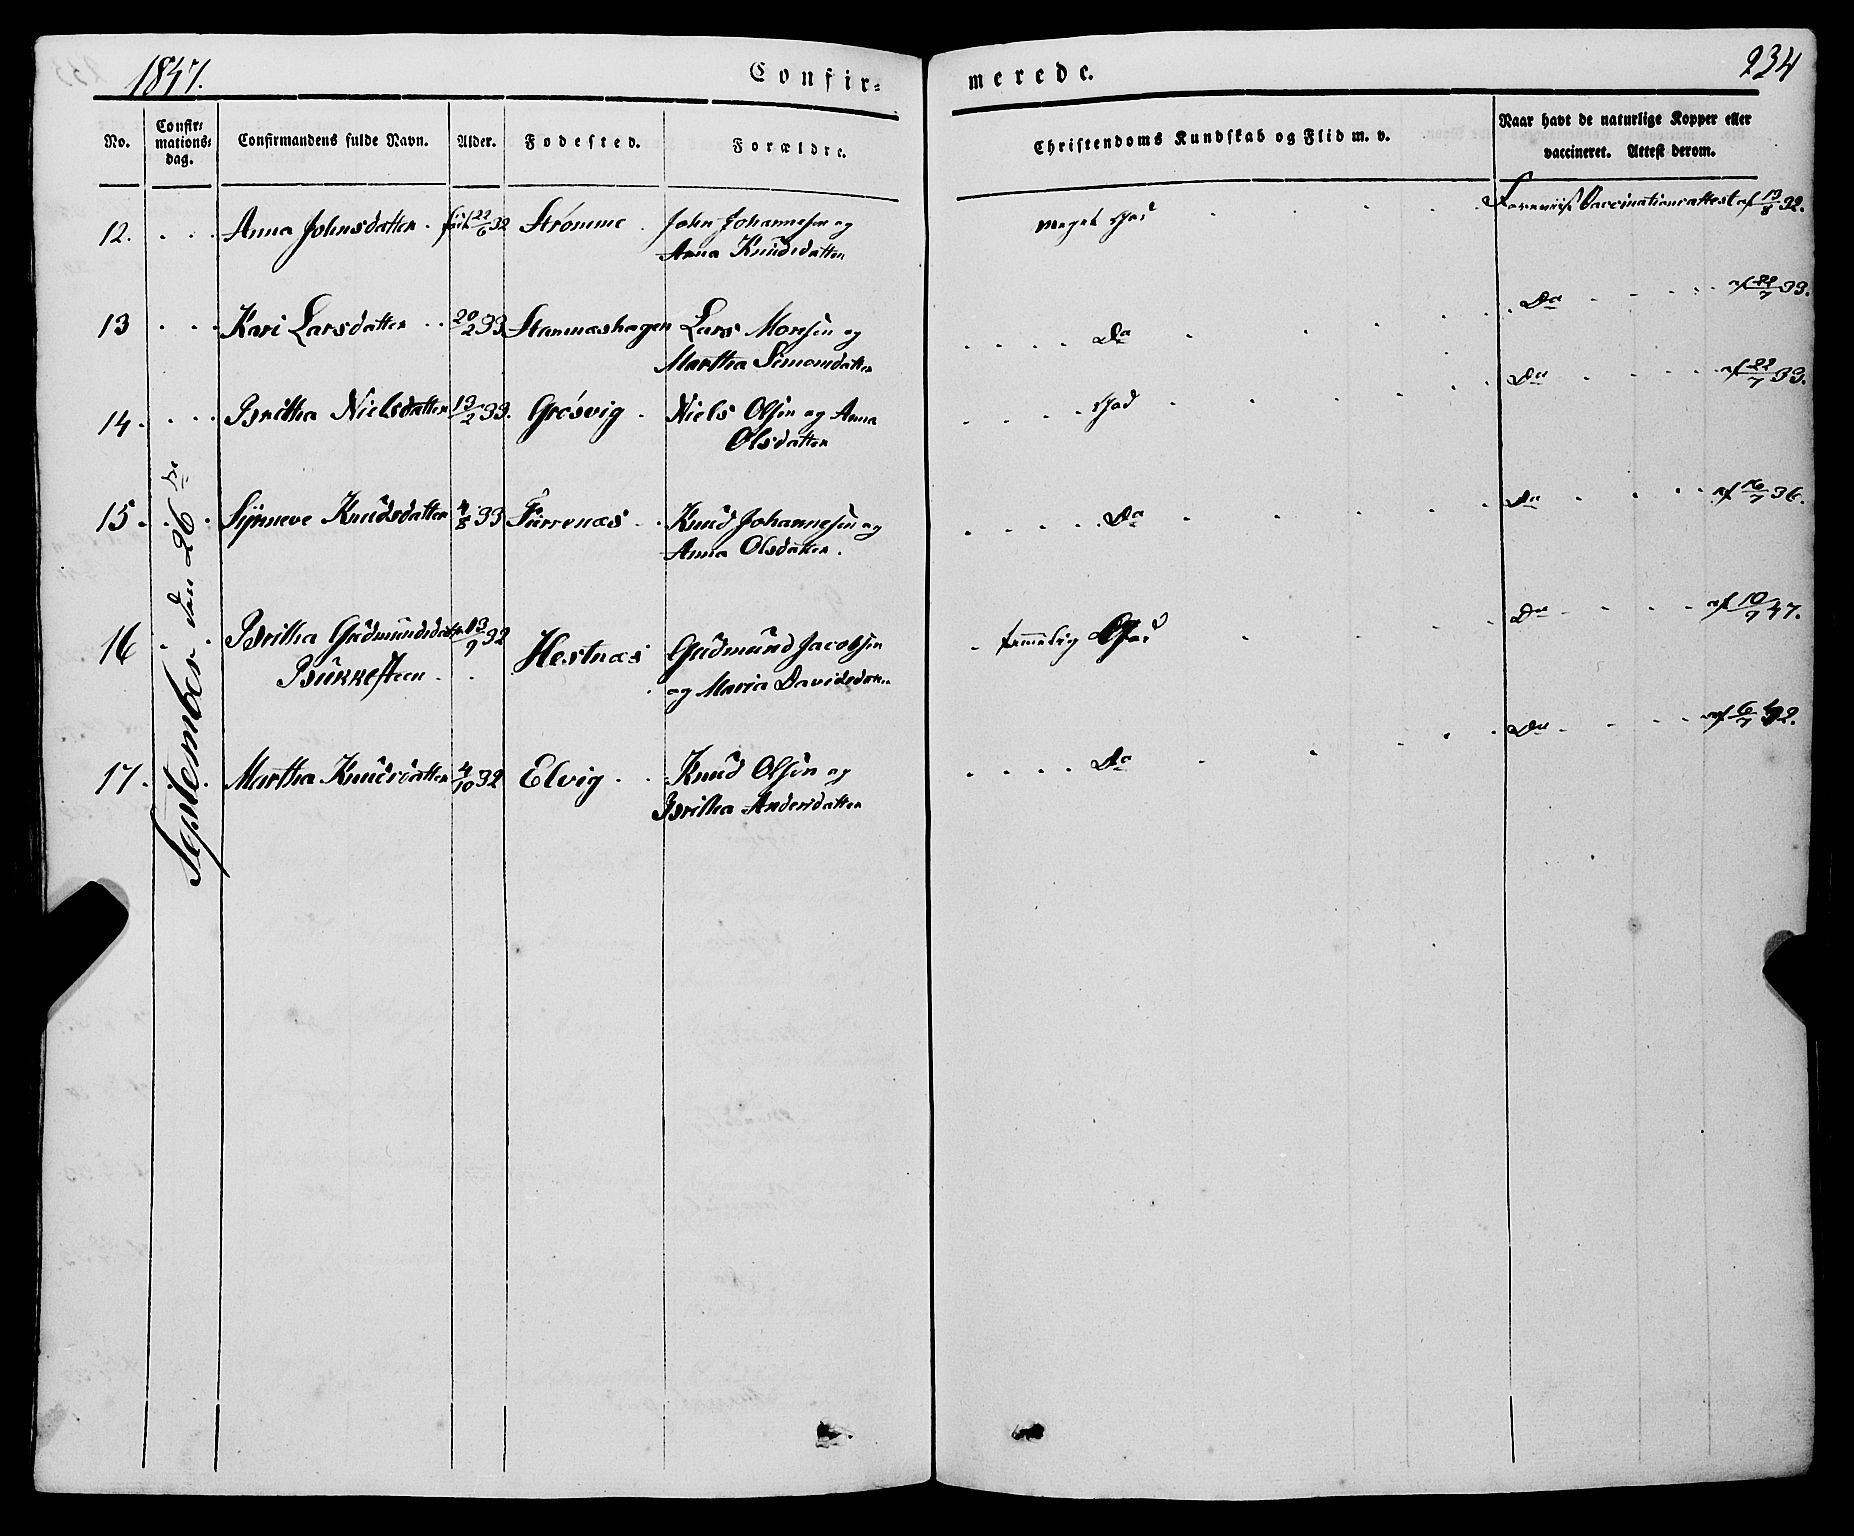 1847.
Confir= merede.
234
No.
Confir=
mations=
dag.
Confirmandens fulde Navn.
Alder.
Fødested.
Forældre.
Christendoms Kundskab og Flid m. v.
Naar havt de naturlige Kopper eller
vaccineret. Attest derom.
September den 26de
12. Anna Johnsdatter. født 22/6 32 Strømme John Johannesen og
Anna Knudsdatter
meget God
Foreviist Vaccinationsattest af 13/8 32.
13 Kari Larsdatter 20/2 33. Stamneshagen Lars Monsen og
Martha Simonsdatter
Do
Do af 22/7 33.
14. Britha Nielsdatter 13/2 33. Grøsvig Niels Olsen og Anna
Olsdatter
God
Do af 22/7 33.
15. Synneve Knudsdatter 4/8 33 Furrenæs Knud Johannesen og
Anna Olsdatter.
Do
Do af 16/7 36.
16 Britha Gudmundsdatter 13/9 32 Hestnæs Gudmund Jacobsen
Bukkesteen og Maria Davidsdatter
temmelig God
Do af 10/9 47.
17. Martha Knudsdatter 4/10 32 Elvig Knud Olsen og
Britha Andersdatter
Do
Do af 6/7 42.